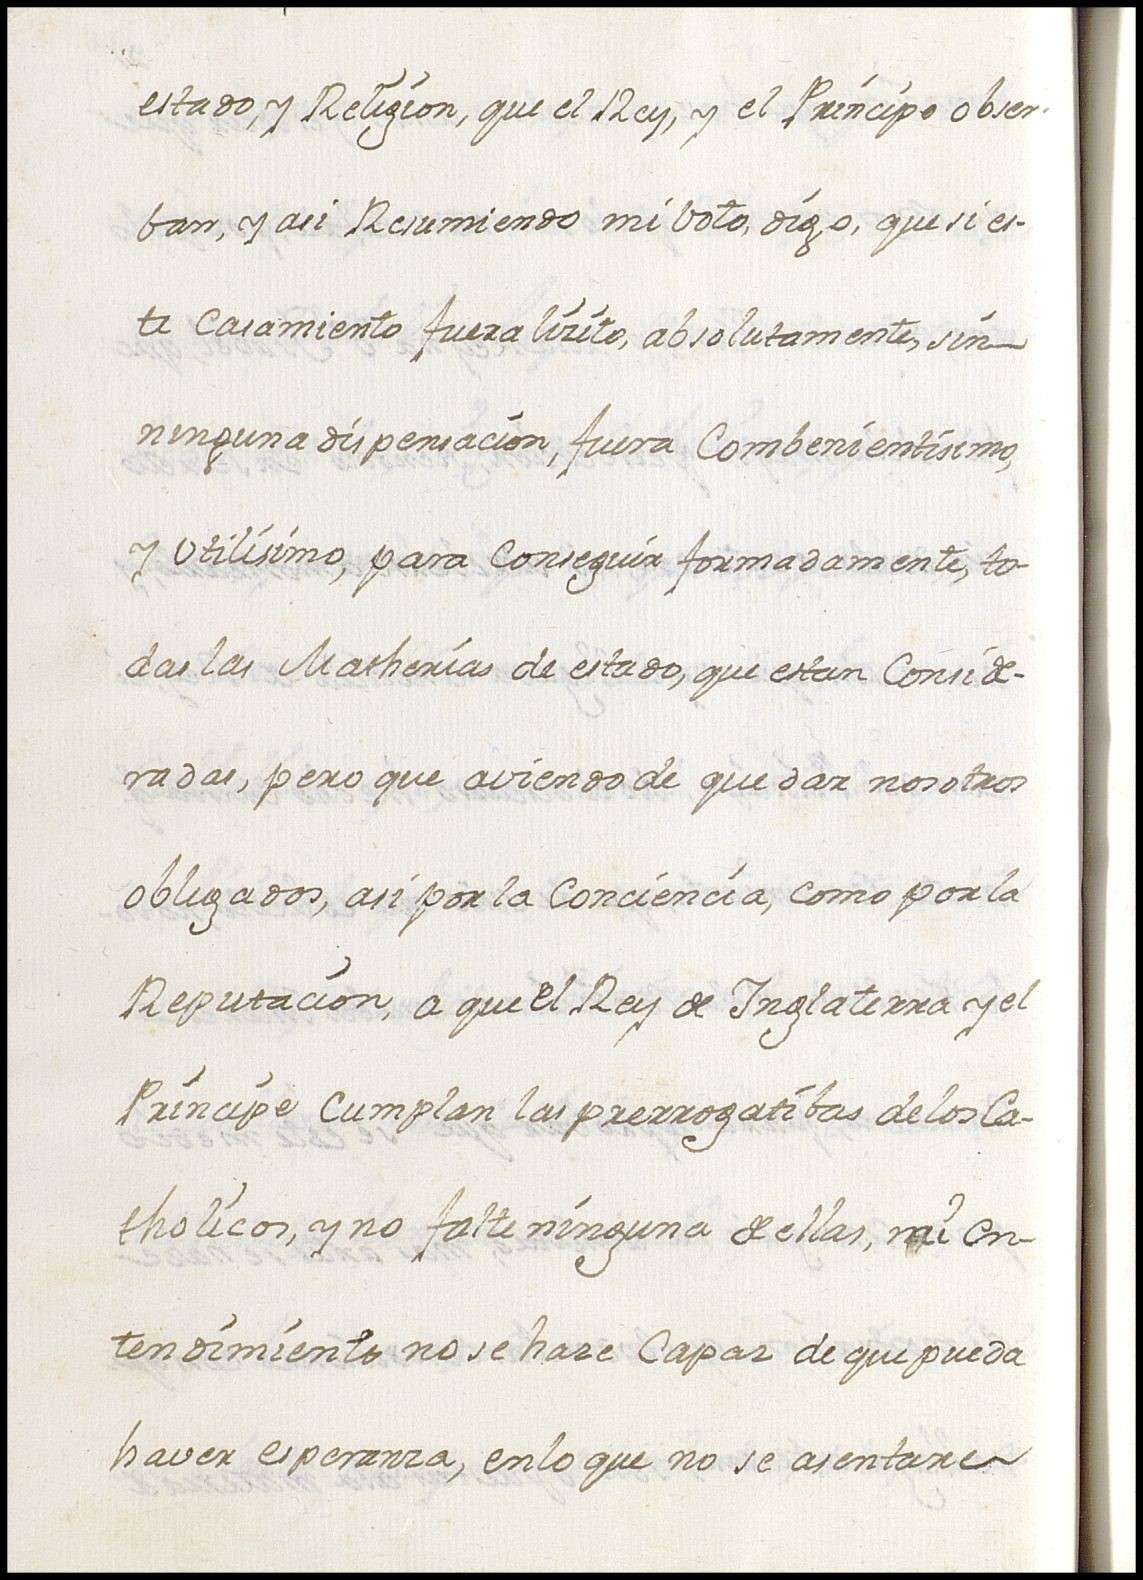 estado, y Religion, que el Rey, y el Principe obser-
ban, y asi Resumiendo mi voto, digo, que si es-
te Casamiento fuera lizito, absolutamente, sin
ninguna dispensacion, fuera Combenientisimo,
y Utilisimo, para Conseguir formadamente, to-
das las Matherias de estado, que estan Conside-
radas, pero que aviendo de quedar nosotros
obligados, asi por la Conciencia, como por la
Reputacion, a que el Rey de Inglaterra y el
Principe Cumplan las prerrogatibas delos Ca-
tholicos, y no falte ninguna de ellas, mi en-
tendimiento no se haze Capaz de que pueda
haver esperanza, enlo que no se asentare